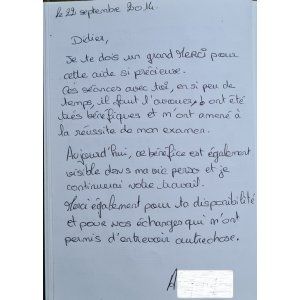 le 22 septembre 2014.
Didier,
Je te dois un grand MERCI pour
cette aide si précieuse.
Ces séances avec toi, en si peu de
temps, il faut l'avouer, ont été
très bénéfiques et m'ont amené à
la réussite de mon examen.
Aujourd'hui, ce bénéfice est également
visible dans ma vie perso et je
continuerai votre travail.
Merci également pour ta disponibilité
et pour nos échanges qui m'ont
permis d'entrevoir autrechose.
A